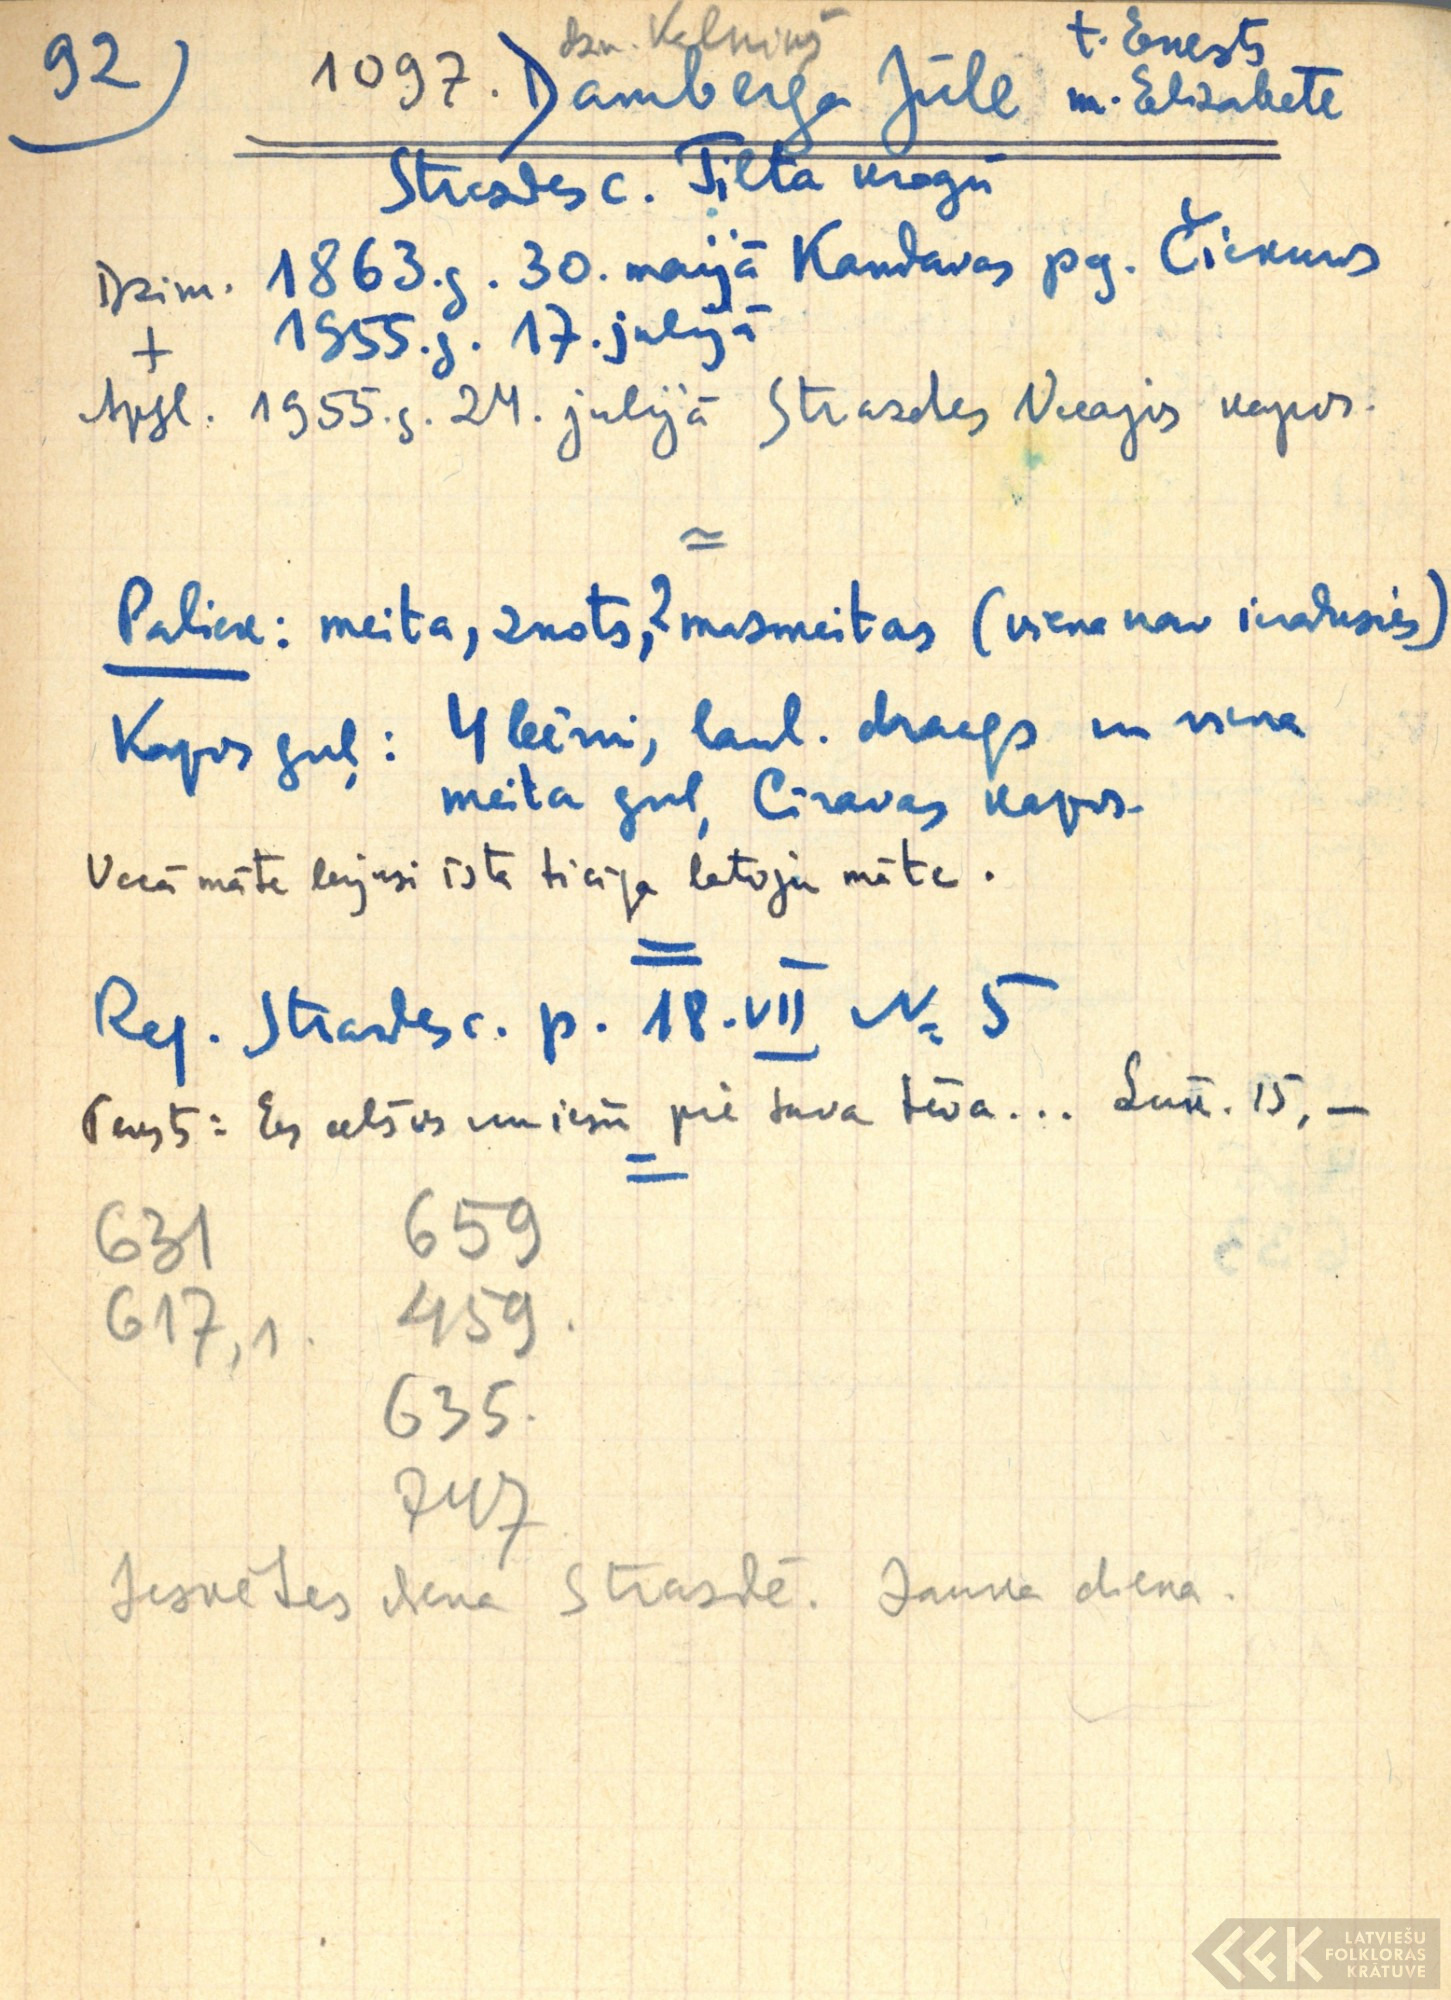 92)
dzim. Kalniņš
t. Ernests
1097. Damberga Jūle m. Elizabete
Strazdes c. Tilta krogū
Dzim. 1863.g. 30. maijā Kandavas pg. Čiekuros
+ 1955.g. 17. julijā
Apgl. 1955.g. 24. julijā Strazdes Vecajos kapos.
Paliek: meita, znots, 2 masmeitas (viena nav ieradusies)
Kapos guļ: 4 bērni, laul. draugs un viena
meita guļ Cīravas kapos.
Vecā māte bijusi īsta ticīga latvju māte.
Reģ. Strazdes c. p. 18.VII № 5
Teksts: Es celšos un iešu pie tava tēva... Lūk. 15, –
631 659
617,1. 459.
635.
747
Iesvētes diena Strazdē. Jauka diena.
LATVIEŠU
FOLKLORAS
KRĀTUVE